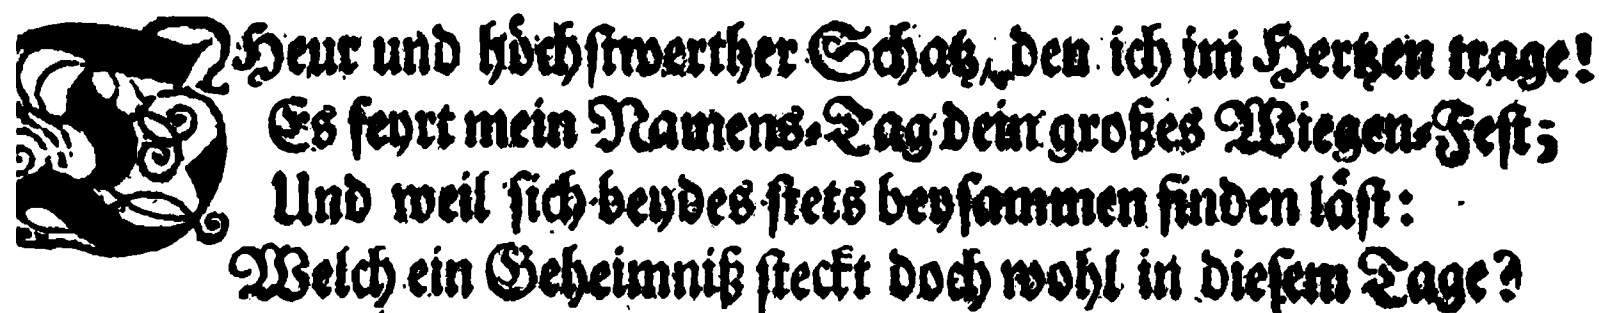 THeur und höchstwerther Schatz, den ich im Hertzen trage!
Es feyrt mein Namens-Tag dein großes Wiegen-Fest;
Und weil sich beydes stets beysammen finden läst:
Welch ein Geheimniß steckt doch wohl in diesem Tage?